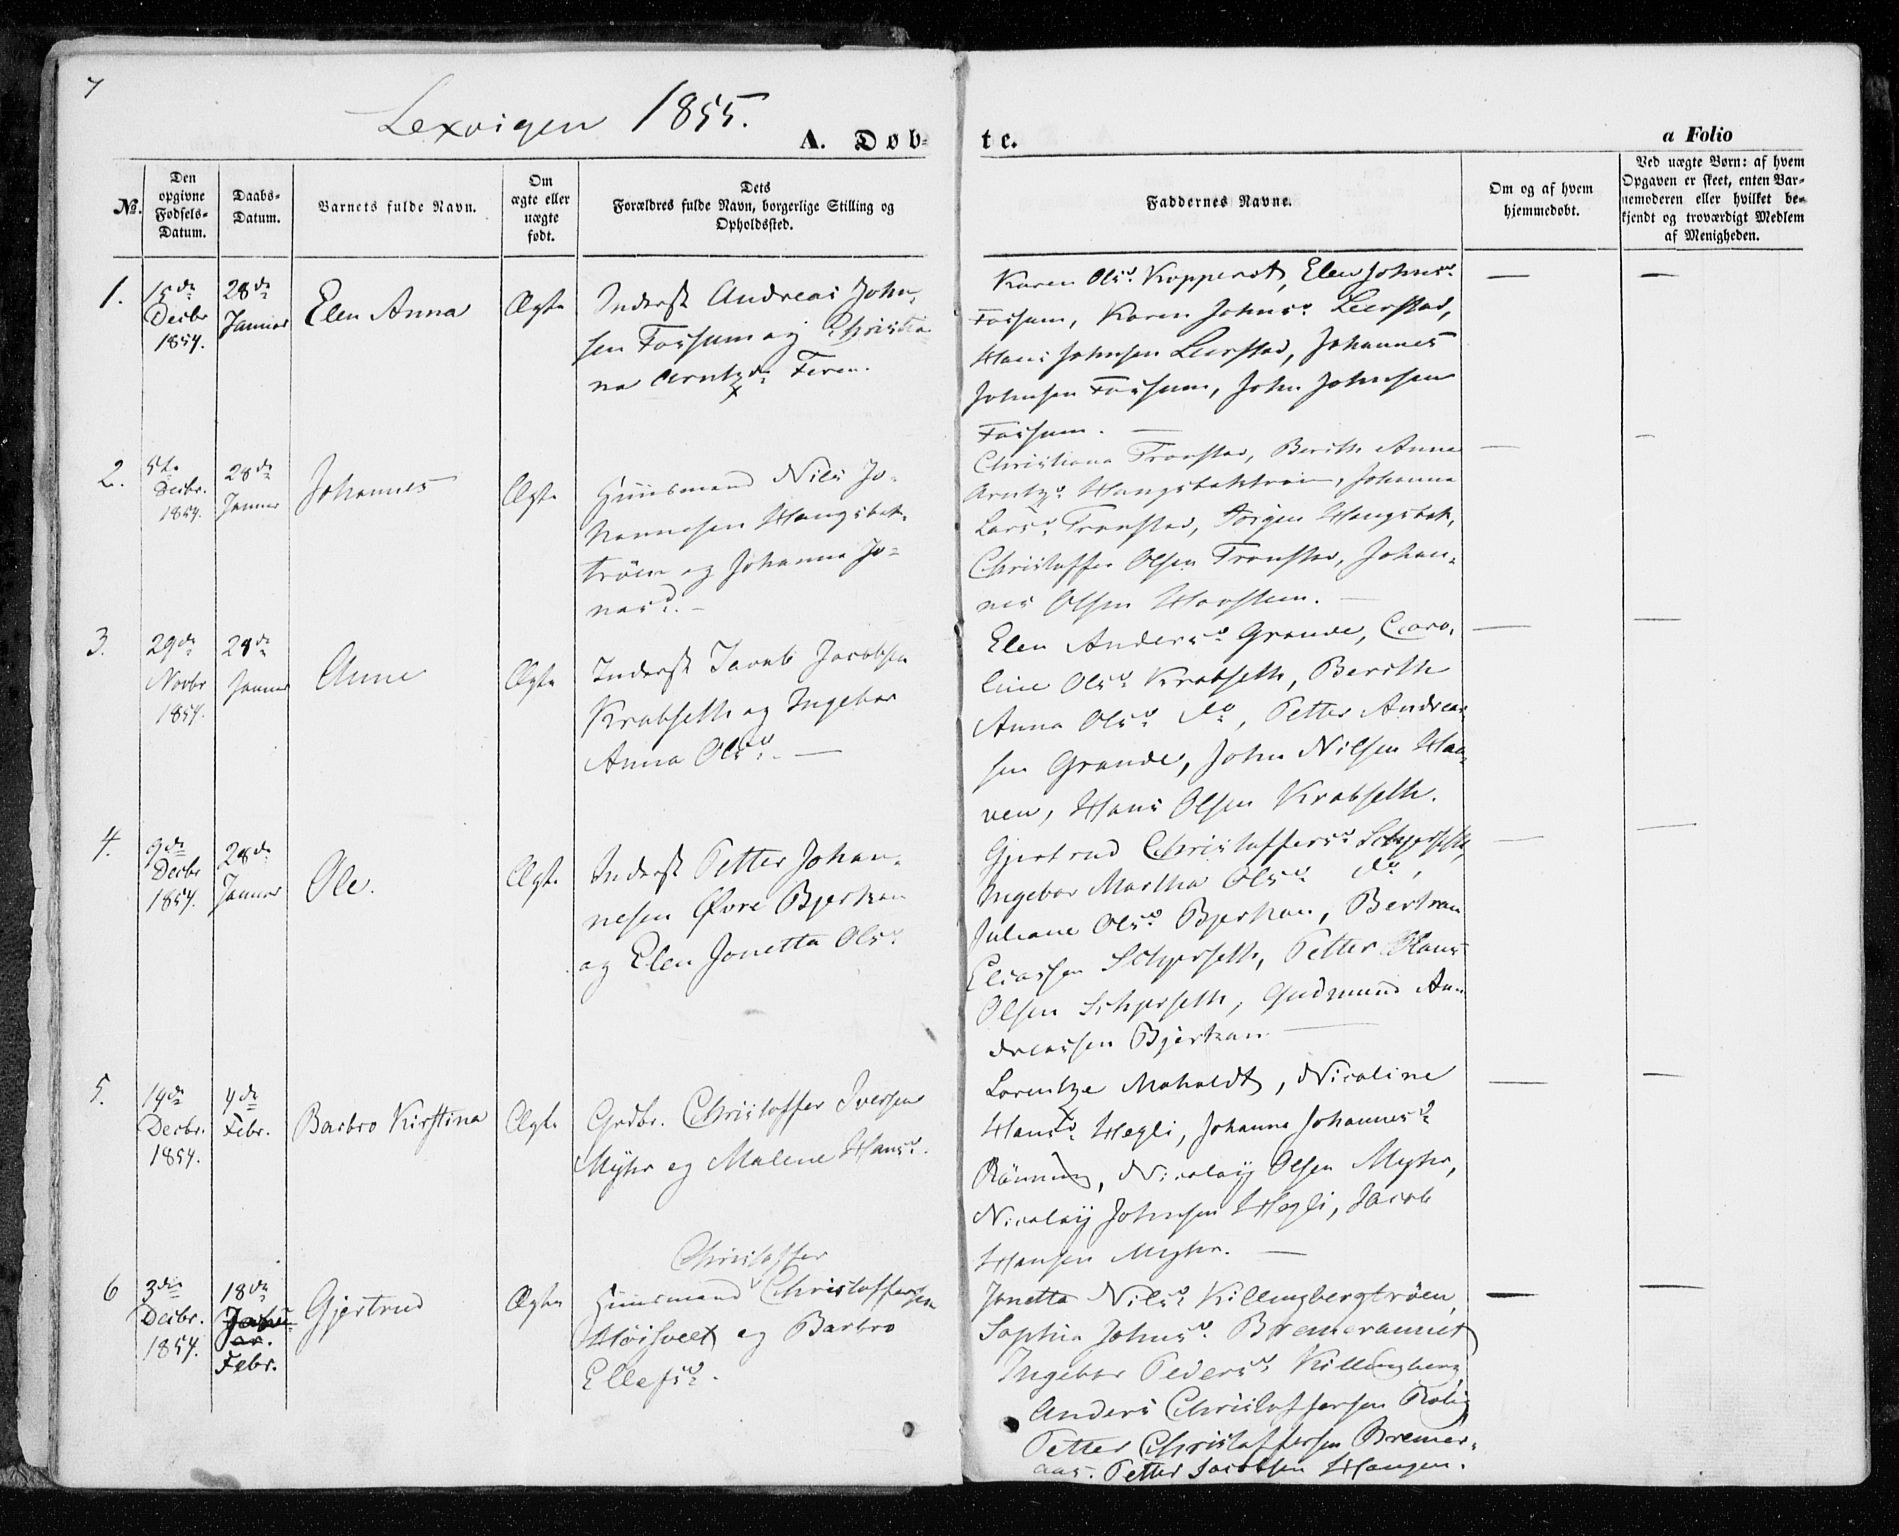 7
Lexvigen 1855.
A. Døb-
te.
a Folio
№.
Den
opgivne
Fødsels-
Datum.
Daabs-
Datum.
Barnets fulde Navn.
Om
ægte eller
uægte
født.
Dets
Forældres fulde Navn, borgerlige Stilling og
Opholdssted.
Faddernes Navne.
Om og af hvem
hjemmedøbt.
Ved uægte Børn: af hvem
Opgaven er skeet, enten Bar-
nemoderen eller hvilket be-
kjendt og troværdigt Medlem
af Menigheden.
1.
15de
Decbr
1854.
28de
Januar
Elen Anna
Ægte
Inderst Andreas John-
sen Fossum og Christia-
na Arntzdr
Karen Olsd. Kopperot, Elen Johnsd.
Fossum, Karen Johnsd. Leerstad,
Hans Johnsen Leerstad, Johannes
Johnsen Fossum, John Johnsen
Fossum. —
2.
5te
Decbr.
1854.
28de
Januar
Johannes
Ægte
Huusmand Nils Jo-
hannesen Haugsbak-
trøen og Johanna Jo-
nasd. —
Christiana Tronstad, Berith Anna
Arntzd. Haugsbaktrøen, Johanna
Larsd. Tronstad, Jørgen Haugsbak,
Christoffer Olsen Tronstad, Johan-
nes Olsen —
3.
29de
Novbr
1854.
28de
Januar
Anne
Ægte
Inderst Jacob Jacobsen
Krabseth og Ingebor
Anna Olsd. —
Elen Andersd. Grande, Caro-
line Olsd. Krabseth, Berith
Anna Olsd. do, Petter Andreas-
sen Grande, John Nilsen Ha-
ven, Hans Olsen Krabseth.
4.
9de
Decbr
1854.
28de
Januar
Ole.
Ægte
Inderst Petter Johan-
nesen Øvre Bjerkan
og Elen Jonetta Olsd.
Gjertrud Christoffersd. Schjerseth,
Ingebor Martha Olsd. do,
Juliane Olsd. Bjerkan, Bertran
Eliassen Schjerseth, Petter Hans
Olsen Schjerseth, Gudmund An-
dreassen Bjerkan —
5.
14de
Decbr.
1854.
4de
Febr.
Barbro Kirstina
Ægte
Grdbr. Christoffer Iversen
Myhr og Malene Hansd.
Lorentze Moholdt, Nicoline
Hansd. Hegli, Johanna Johannesd.
Rønning, Nicolay Olsen Myhr,
Nicolay Johnsen Hegli, Jacob
Hansen Myhr. —
6
3die
Decbr.
1854.
18de
Janu-
ar.
Febr.
Gjertrud
Ægte
Christoffer
Huusmand Christoffersen
Høisveet og Barbro
Ellefsd.
Jonetta Nilsd. Killingbergtrøen,
Sophia Johnsd.
Ingebor Pedersd. Killingberg,
Anders Christoffersen
Petter Christoffersen Bremer-
aas. Petter Jacobsen Haugen.